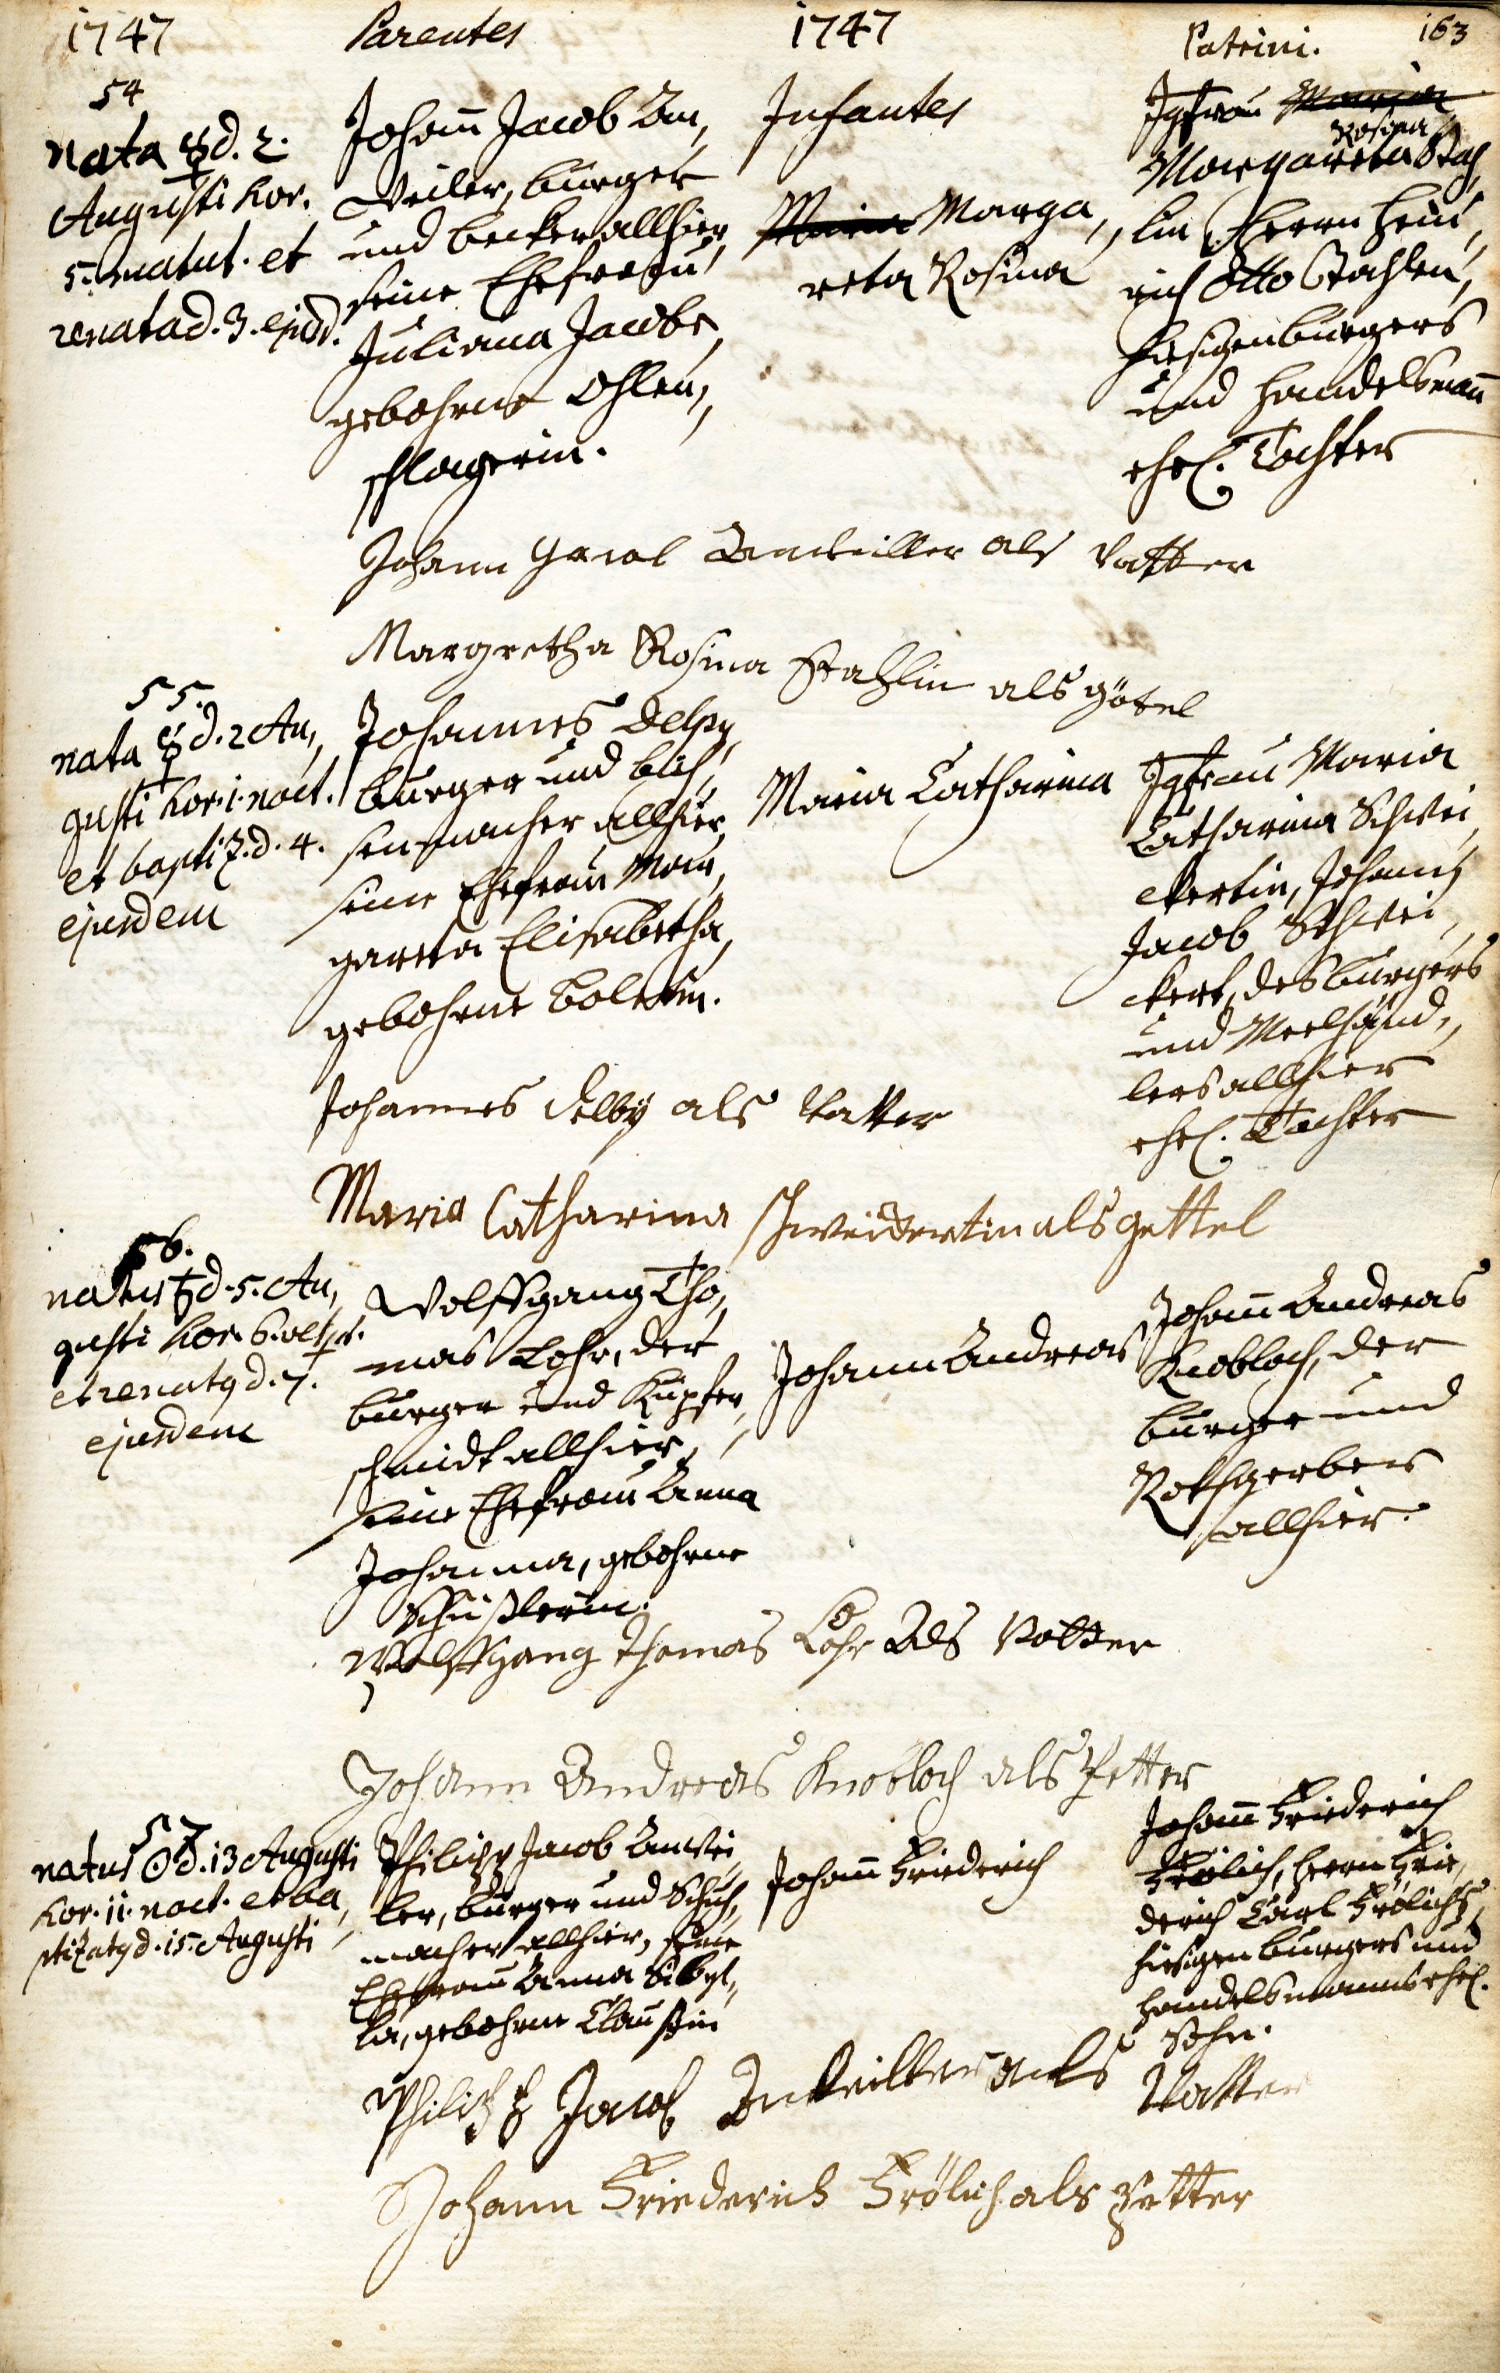 1747 Parentes 1747 Patrini. 163
54
nata ☿ d. 2.
Augusti hor.
5. matut. et
renata d. 3. ejusd.
Johann Jacob An,
weiler, burger
und becker allhier,
seine Ehefrau
Juliana Jacobe,
gebohrne Ohlen,
schlagerin.
Infantes
Maria Marga,
reta Rosina
Jgfrau Maria
Rosina
Margareta Stah,
lin, Herrn Hein,
rich Otto Stahlen,
hiesigen burgers
und handelsmann
ehel. Tochter
Johann Jacob Anweiller als Vatter
Margretha Rosina Stahlin als götel
55.
nata ☿ d. 2 Au,
gusti hor. 1. noct.
et baptiz. d. 4.
ejusdem
Johannes Delby,
burger und büch,
senmacher allhier,
seine Ehefrau Mar,
gareta Elisabetha,
gebohrne
Maria Catharina
Jgfrau Maria
Catharina Schwei,
ckertin, Johann
Jacob Schwei,
ckert, des burgers
und Meelhänd,
lers allhier
ehel. Tochter
Johannes Delby als Vatter
Maria Catharina schweickertin als gettel
56.
natus ♄ d. 5. Au,
gusti hor. 6. vesp.
et renatus d. 7.
ejusdem
Wolffgang Tho,
mas Lohr, der
burger und Kupfer,
schmidt allhier,
seine Ehefrau Anna
Johanna, gebohrne
Schüßlerin.
Johann Andreas
Johann Andreas
Knobloch, der
burger und
Rothgerber
allhier.
Wolffgang Thomas Lohr Als Vatter
Johann Andreas Knobloch als Petter
57
natus ☉ d. 13 Augusti
hor. 11. noct. et ba,
ptizatus d. 15. Augusti
Philipp Jacob Anwei,
ler, burger und Schuh,
macher allhier, seine
Ehefrau Anna Sibyl,
la, gebohrne Claußin
Johann Friederich
Johann Friederich
Frölich, herrn Frie,
derich Carl Frölichs,
hiesigen burgers und
handelsmanns ehel.
Sohn.
Philipp Jacob Anweiller als Vatter
Johann Friederich Frölich als Petter